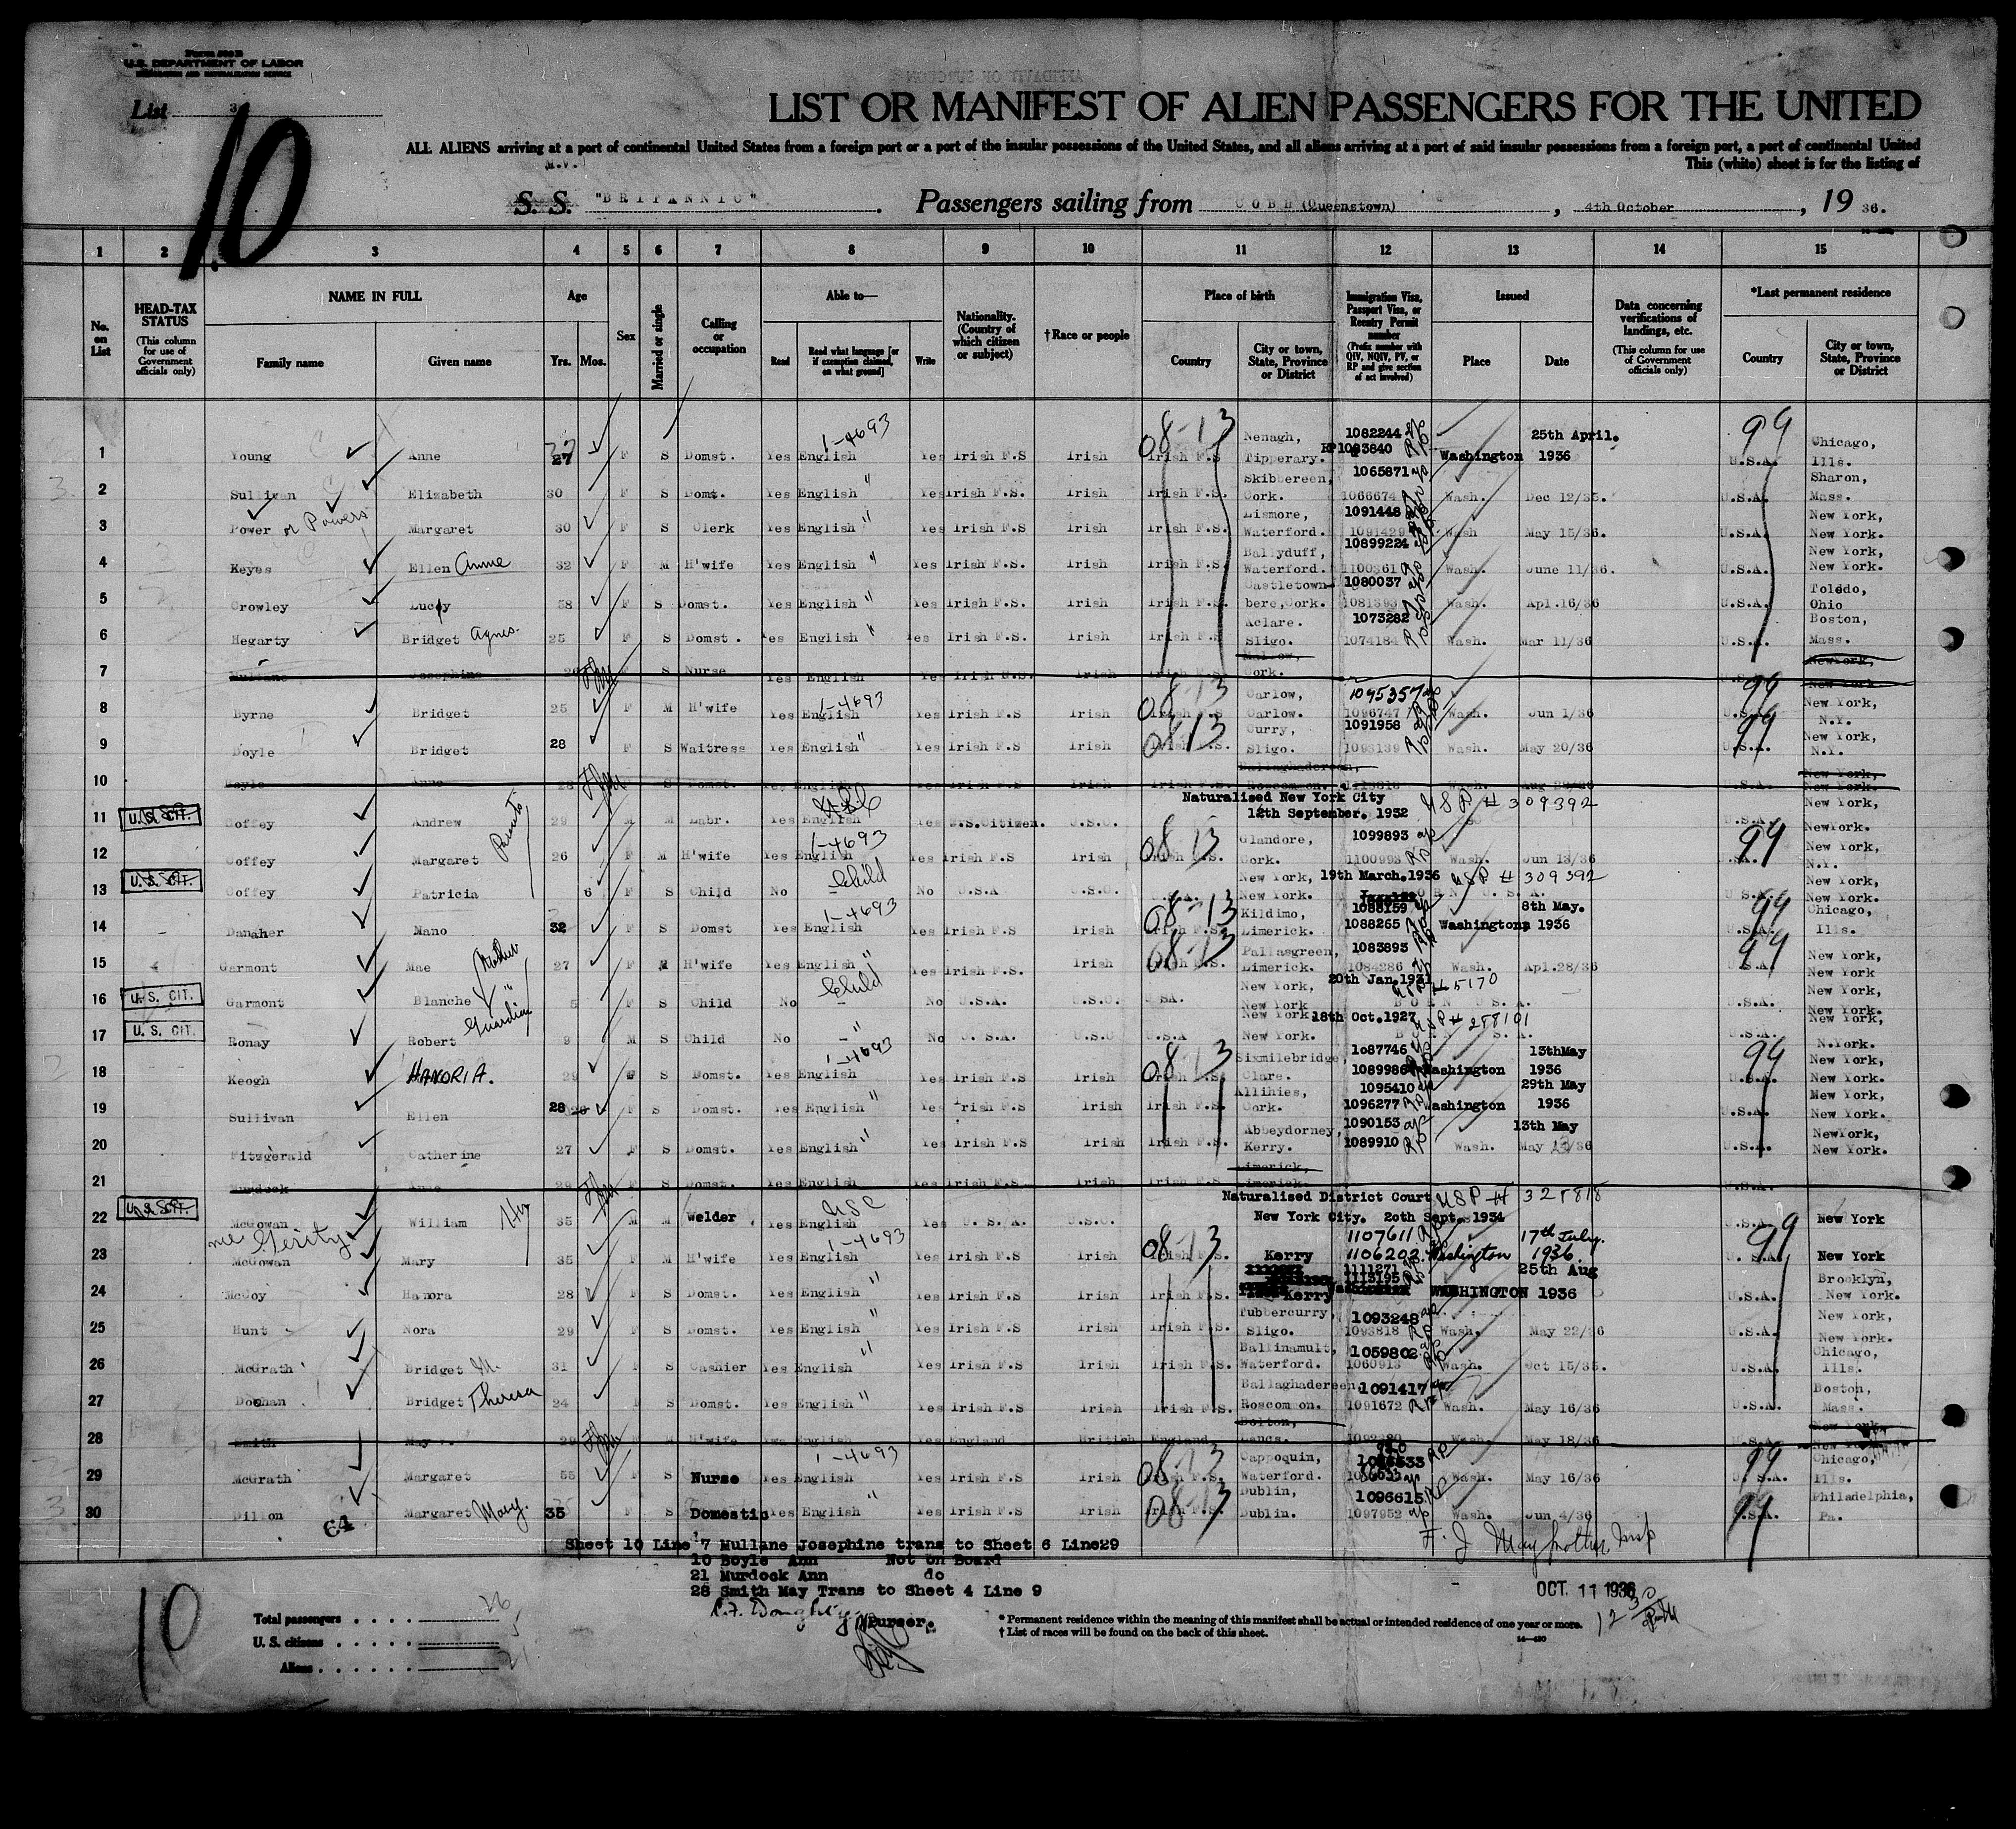 Form 500 B
U.S. DEPARTMENT OF LABOR
IMMIGRATION AND NATURALIZATION SERVICE
List 3
10
LIST OR MANIFEST OF ALIEN PASSENGERS FOR THE UNITED
ALL ALIENS arriving at a port of continental United States from a foreign port or a port of the insular possessions of the United States, and all aliens arriving at a port of said insular possessions from a foreign port, a port of continental United
This (white) sheet is for the listing of
M.V.
S. S. "BRITANNIC". Passengers sailing from COBH (Queenstown), 4th October, 19 36.
1 2 3 4 5 6 7 8 9 10 11 12 13 14 15
No. on List
HEAD-TAX STATUS (This column for use of Government officials only)
NAME IN FULL Family name Given name
Age Yrs. Mos.
Sex
Married or single
Calling or occupation
Able to— Read Read what language [or if exemption claimed, on what ground] Write
Nationality. (Country of which citizen or subject)
† Race or people
Place of birth Country City or town, State, Province or District
Immigration Visa, Passport Visa, or Reentry Permit number (Prefix number with QIV, NQIV, PV, or RP and give section of act involved)
Issued Place Date
Data concerning verifications of landings, etc. (This column for use of Government officials only)
*Last permanent residence Country City or town, State, Province or District
1 Young Anne 27 F S Domst. Yes English 1-4693 Yes Irish F.S Irish 08-13 Irish F.S Nenagh, Tipperary. 1082244 RP1083840 Washington 25th April. 1936 99 U.S.A. Chicago, Ills.
2 Sullivan Elizabeth 30 F S Domt. Yes English " Yes Irish F.S. Irish Irish F.S. Skibbereen, Cork. 1065871 1066674 Wash. Dec 12/35. U.S.A. Sharon, Mass.
3 Power or Powers Margaret 30 F S Clerk Yes English " Yes Irish F.S Irish Irish F.S. Lismore, Waterford. 1091448 1091429 Wash May 15/36. U.S.A. New York, New York.
4 Keyes Ellen Anne 32 F M H'wife Yes English " Yes Irish F.S. Irish Irish F.S. Ballyduff, Waterford. 10899224 1100361 Wash. June 11/36. U.S.A. New York, New York.
5 Crowley Lucy 58 F S Domst. Yes English " Yes Irish F.S. Irish Irish F.S. Castletown-bere, Cork. 1080037 Wash. Apl.16/36 U.S.A. Toledo, Ohio
6 Hegarty Bridget Agnes. 25 F S Domst. Yes English " Yes Irish F.S. Irish Irish F.S Aclare. Sligo. 1073282 1074184 Wash. Mar 11/36 U.S.A. Boston, Mass.
7 Josephine S Nurse Yes English Yes Irish F.S. Irish Irish F.S. Cork. New York, New York
8 Byrne Bridget 25 F M H'wife Yes English 1-4693 Yes Irish F.S Irish 08-13 Irish F.S Carlow, Carlow. 1095357 1096747 Wash. Jun 1/36 99 U.S.A. New York, N.Y.
9 Doyle Bridget 28 F S Waitress Yes English " Yes Irish F.S Irish 0813 Irish F.S. Curry, Sligo. 1091958 1093139 Wash. May 20/36 99 U.S.A. New York, N.Y.
10 Doyle Anne 28 S Domst. Yes English Yes Irish F.S Irish Irish F.S. Ballaghadereen, Roscommon. Wash. U.S.A. New York, New York.
11 U.S. CIT. Coffey Andrew 29 M M Labr. Yes English Yes U.S.Citizen. U.S.C. Naturalised New York City 12th September. 1932 USP # 309392 U.S.A. New York, NewYork.
12 Coffey Margaret 26 F M H'wife Yes English 1-4693 Yes Irish F.S Irish 0813 Irish F.S. Glandore, Cork. 1099893 1100993 Wash. Jun 13/36 99 U.S.A. New York, N.Y.
13 U. S. CIT. Coffey Patricia 6 F S Child No Child No U.S.A U.S.C. New York, New York. 19th March.1936 USP # 309392 BORN U.S.A. U.S.A. New York, New York.
14 Danaher Nano 32 F S Domst Yes English 1-4693 Yes Irish F.S Irish 08-13 Irish F.S. Kildimo, Limerick. 1088159 1088265 Washington 8th May. 1936 99 U.S.A. Chicago, Ills.
15 Garmont Mae 27 F M H'wife Yes English " Yes Irish F.S. Irish 08-13 Irish F.S. Pallasgreen, Limerick. 1083893 1084286 Wash. Apl.28/36 99 U.S.A New York, New York
16 U. S. CIT. Garmont Blanche Mother 5 F S Child No Child No U.S.A. U.S.C. USA. New York, New York 20th Jan.1931 #5170 BORN U.S.A. U.S.A. New York, New York.
17 U. S. CIT. Ronay Robert Guardian 9 M S Child No " No U. S.A. U.S.C U.S.A New York, New York. 18th Oct.1927 USP # 288101 U.S.A. New York, N.York.
18 Keogh HANORIA. 29 F S Domst. Yes English 1-4693 Yes Irish F.S Irish 08-13 Irish F.S. Sixmilebridge, Clare. 1087746 1089986 Washington 13thMay 1936 99 U.S.A. New York, New York.
19 Sullivan Ellen 28 F S Domst. Yes English " Yes Irish F.S Irish Irish F.S. Allihies, Cork. 1095410 1096277 Washington 29th May 1936 U.S.A. New York, New York.
20 Fitzgerald Catherine 27 F S Domst. Yes English " Yes Irish F.S Irish Irish F.S. Abbeydorney, Kerry. 1090153 1089910 Wash. 13th May May 13/36 U.S.A. NewYork, New York.
21 Murdock Anne 29 S Domst. Yes English Yes Irish F.S Irish Irish F.S. Limerick, Limerick. U.S.A.
22 U.S. CIT. McGowan William 35 M M Welder Yes English USC Yes U. S. A. U.S.C. Naturalised District Court New York City. 20th Sept. 1934 USP # 328818 U.S.A. New York
23 nee Gerity McGowan Mary 35 F M H'wife Yes English 1-4693 Yes Irish F.S Irish 08-13 Irish F.S. Kerry 1107611 1106202 Washington 17th July. 1936. 99 U.S.A New York
24 McCoy Hanora 28 F S Domst. Yes English " Yes Irish F.S Irish Irish F.S. Kerry 1111271 1113195 WASHINGTON 25th Aug 1936 U.S.A. Brooklyn, New York.
25 Hunt Nora 29 F S Domst. Yes English " Yes Irish F.S Irish Irish F.S Tubbercurry, Sligo. 1093248 1093818 Wash. May 22/36 U.S.A. New York, New York.
26 McGrath Bridget M. 31 F S Cashier Yes English " Yes Irish F.S Irish Irish F.S. Ballinamult, Waterford. 1059802 1060913 Wash. Oct 15/35. U.S.A. Chicago, Ills.
27 Doohan Bridget Theresa 24 F S Domst. Yes English " Yes Irish F.S Irish Irish F.S. Ballaghadereen, Roscommon. 1091417 1091672 Wash. May 16/36 U.S.A. Boston, Mass.
28 Smith May 29 M H'wife Yes English Yes England British England Bolton, Lancs. Wash. May 18/36 U.S.A. New York, New York
29 McGrath Margaret 55 F S Nurse Yes English 1-4693 Yes Irish F.S Irish 08-13 Irish F.S. Cappoquin, Waterford. Wash. May 16/36 99 U.S.A. Chicago, Ills.
30 Dillon Margaret Mary. 35 F S Domestic Yes English " Yes Irish F.S Irish 08-13 Irish F.S. Dublin, Dublin. 1096615 1097952 Wash. Jun 4/36 99 U.S.A. Philadelphia, Pa.
64
Sheet 10 Line 7 Mullane Josephine trans to Sheet 6 Line29
10 Boyle Ann Not on Board
21 Murdock Ann do
28 Smith May Trans to Sheet 4 Line 9
Purser.
OCT 11 1936
10
Total passengers . . . . 26
U. S. citizens . . . . . 5
Aliens . . . . . . 21
* Permanent residence within the meaning of this manifest shall be actual or intended residence of one year or more.
† List of races will be found on the back of this sheet.